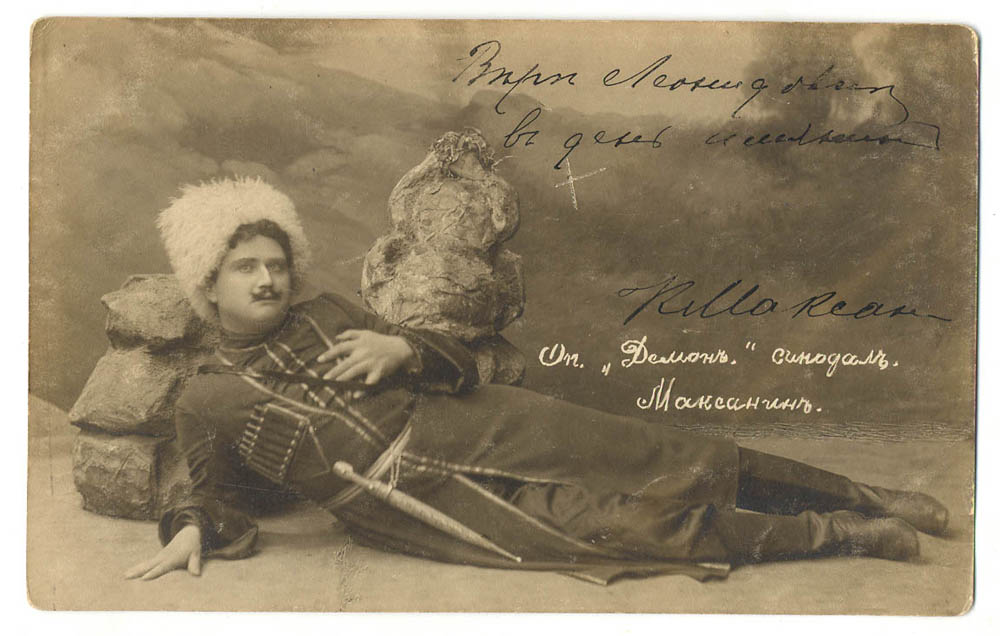 Вѣрѣ Леонидовнѣ
въ день имянинъ
К Максан
Оп. „Демонъ.“ синодалъ.
Максанинъ.